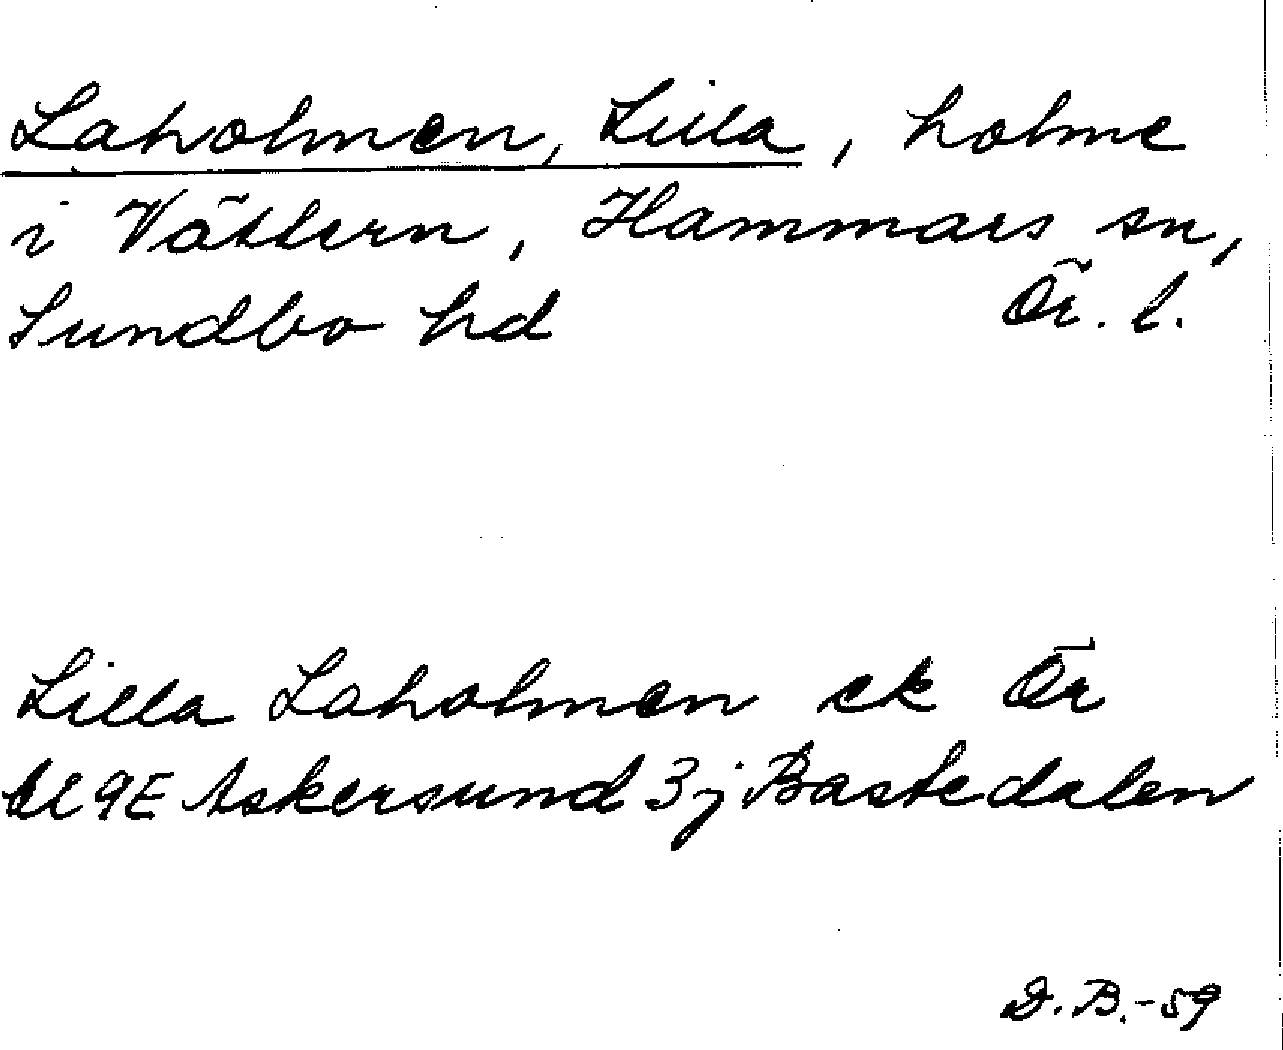 Laholmen, Lilla, holme
i Vättern, Hammars sn,
Sundbo hd Ör. l.
Lilla Laholmen ek Ör
bl 9E Askersund 3j Bastedalen
D.B.-59